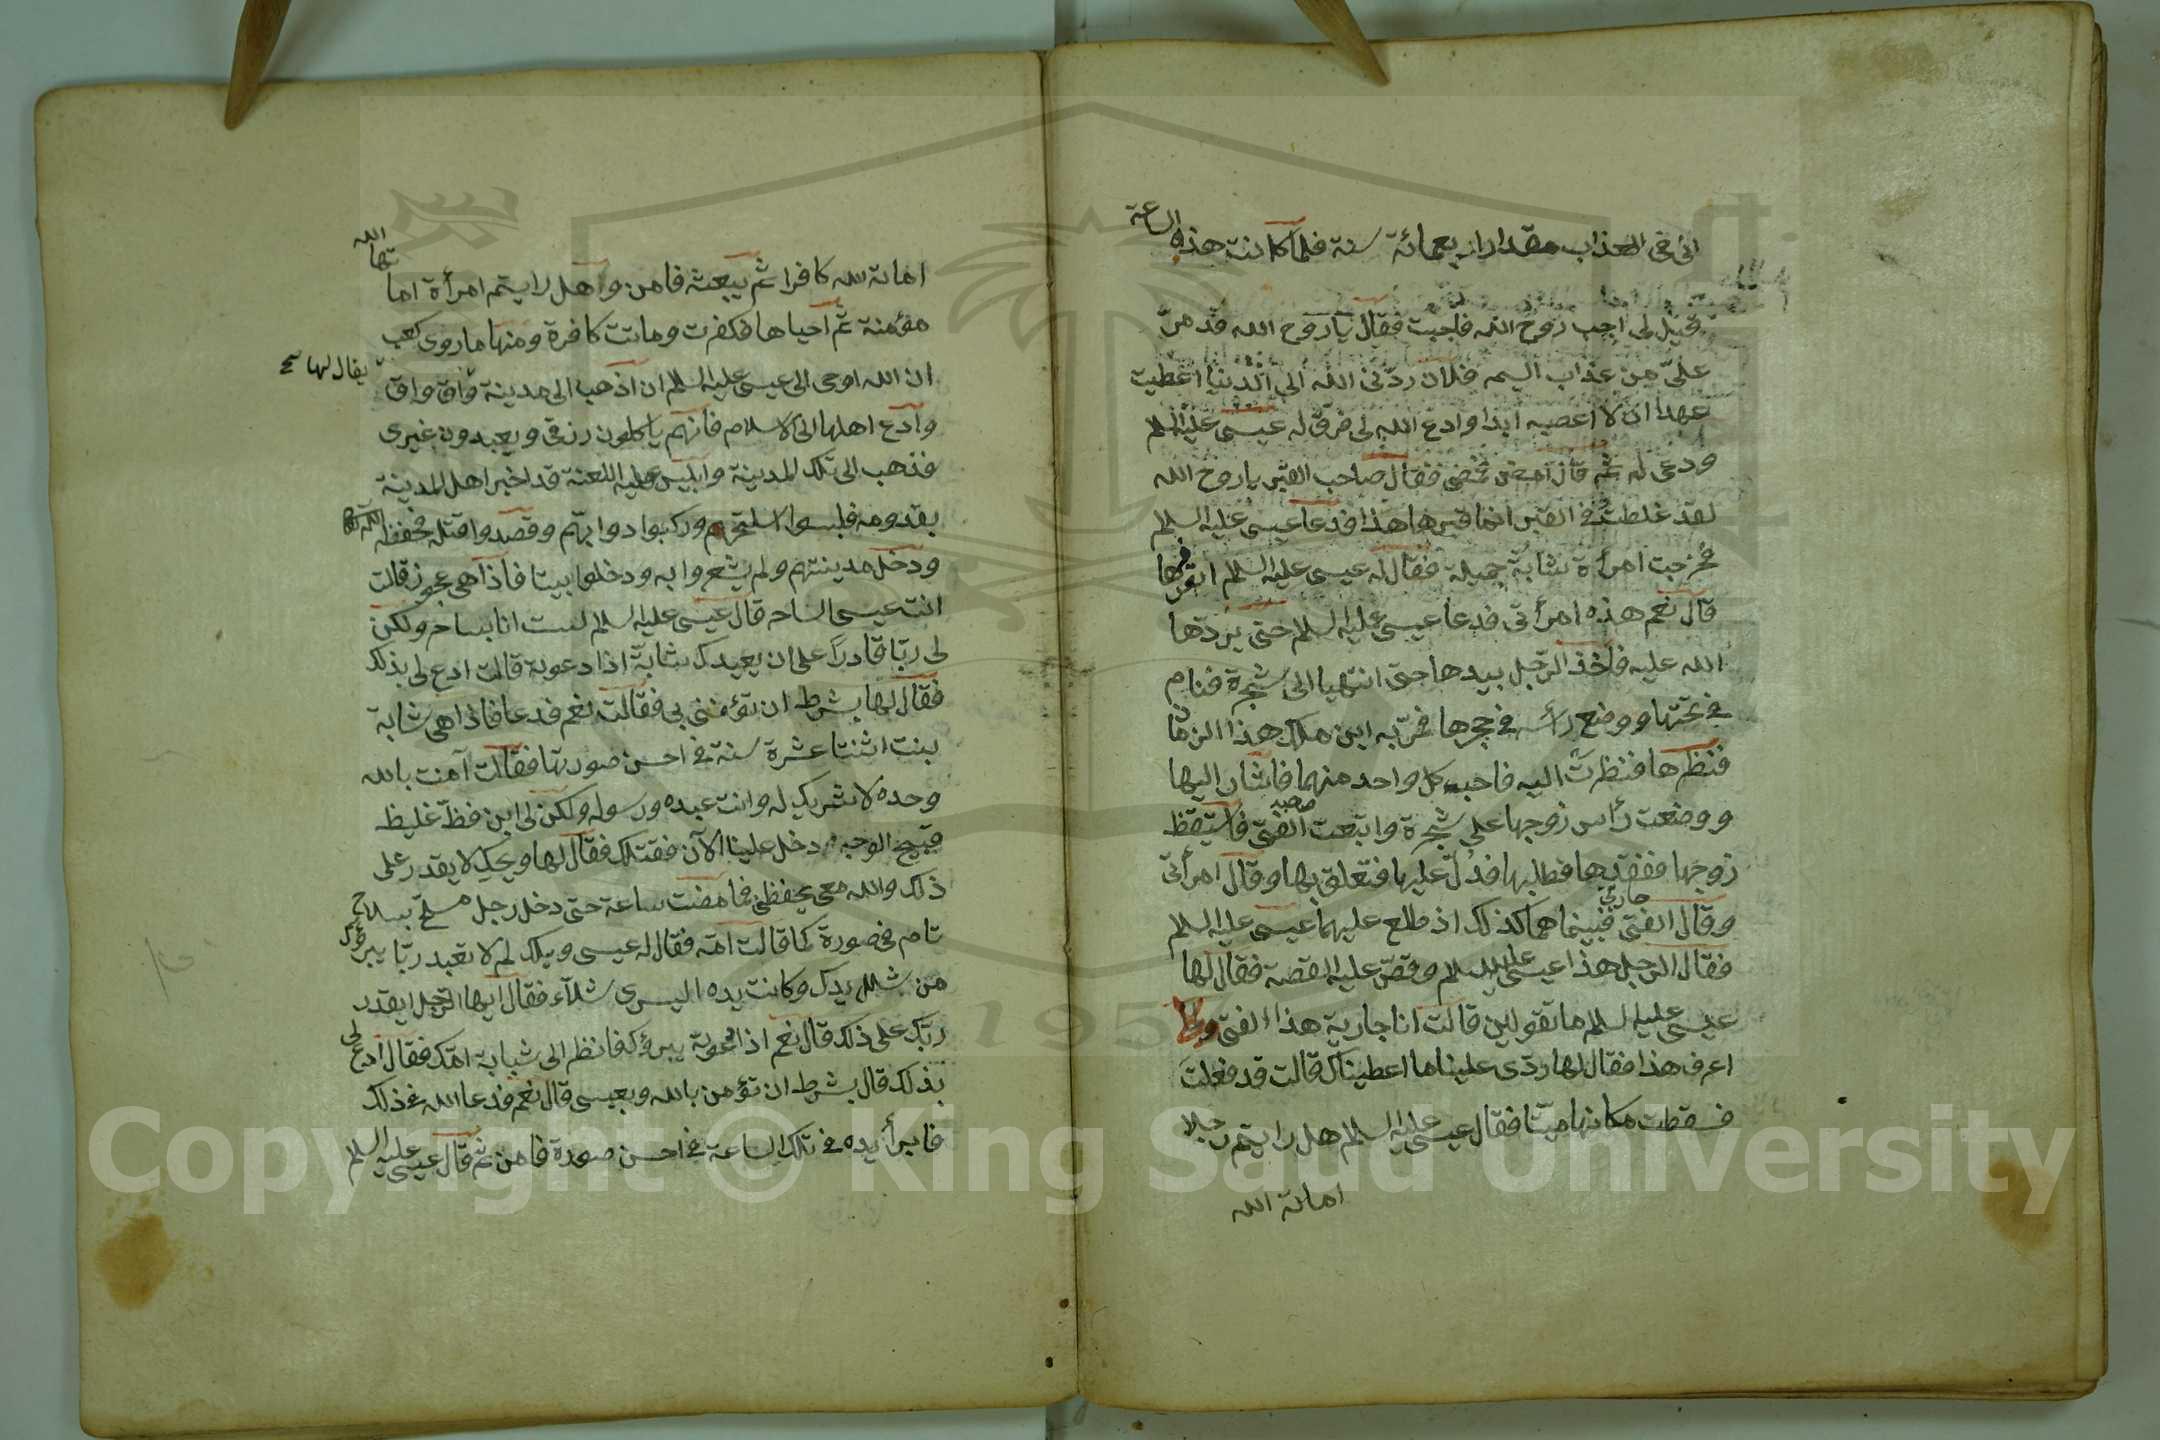 اني في العذاب مقدار اربعمائة سنة فلما كانت هذه الساعة
قيل لي اجب روح الله فاجبت فقال يا روح الله قد مرّ
عليّ من عذاب اليم فلان ردّني الله الى الدنيا اعطيت
عهدا ان لا اعصيه ابدا وادع الله لي فرقّ له عيسى عليه السلام
ودعى له ثم قال امض فمضى فقال صاحب القبر يا روح الله
لقد غلطت في القبر انما قبرها هذا فدعا عيسى عليه السلام
فخرجت امرأة شابة جميلة فقال له عيسى عليه السلم اتعرفها
قال نعم هذه امرأتي فدعا عيسى عليه السلم حتى يردّها
الله عليه فاخذ الرجل بيدها حتى انتهيا الى شجرة فنام
في تحتها ووضع رأسه في حجرها فمرّ به ابن ملك هذا الزمان
فنظرها فنظرت اليه فاحب كل واحد منهما فاشار اليها
ووضعت رأس زوجها على شجرة واتبعت الفتى فاستيقظ
زوجها ففقدها فطلبها فدلّ عليها فتعلق بها وقال امرأتي
وقال الفتى جاريتي فبينما هما كذلك اذ طلع عليهما عيسى عليه السلم
فقال الرجل هذا عيسى عليه السلام وقصّ عليه القصة فقال لها
عيسى عليه السلم ما تقولين قالت انا جارية هذا الفتى ولا
اعرف هذا فقال لها ردّى علينا ما اعطيناك قالت قد فعلت
فسقطت مكانها ميتا فقال عيسى عليه السلم هل رايتم رجلا
اماته الله
اماته الله كافرا ثم يبعثه فامن وهل رايتم امرأة اماتها الله
مؤمنة ثم احياها فكفرت وماتت كافرة ومنها ما روى كعب
ان الله اوحى الى عيسى عليه السلم ان اذهب الى مدينة يقال لها واق واق
وادع اهلها الى الاسلام فانهم ياكلون رزقي ويعبدون غيري
فذهب الى تلك المدينة وابليس عليه اللعنة قد اخبر اهل المدينة
بقدومه فلبسوا اسلحتهم وركبوا دوابهم وقصدوا قتله فحفظه الله
ودخل مدينتهم ولم يشعروا به ودخل بيتا فاذا هي عجوز قالت
انت عيسى الساحر قال عيسى عليه السلم لست انا بساحر ولكن
لي ربّا قادرا على ان يعيدك شابة اذا دعوته قالت ادع لي بذلك
فقال لها بشرط ان تؤمني بي فقالت نعم فدعا فاذا هي شابة
بنت اثنتا عشرة سنة في احسن صورتها فقالت آمنت بالله
وحده لا شريك له وانت عبده ورسوله ولكن لي ابن فظّ غليظ
قبيح الوجه دخل علينا الآن فقتلك فقال لها ويحك لا يقدر على
ذلك والله معي يحفظني فما مضت ساعة حتى دخل رجل مسلّح بسلاح
تام في صورة كما قالت امّه فقال له عيسى ويلك لم لا تعبد ربّا يبرئك
من شلل يدك وكانت يده اليسرى شلاء فقال ايها الرجل ايقدر
ربّك على ذلك قال نعم اذا دعوته يبرؤك فانظر الى شبابة امّك فقال ادع لي
بذلك قال بشرط ان تؤمن بالله وبعيسى قال نعم فدعا الله في ذلك
فابرأ يده في تلك الساعة في احسن صورة فامن ثم قال عيسى عليه السلم
Copyright © King Saud University
1957